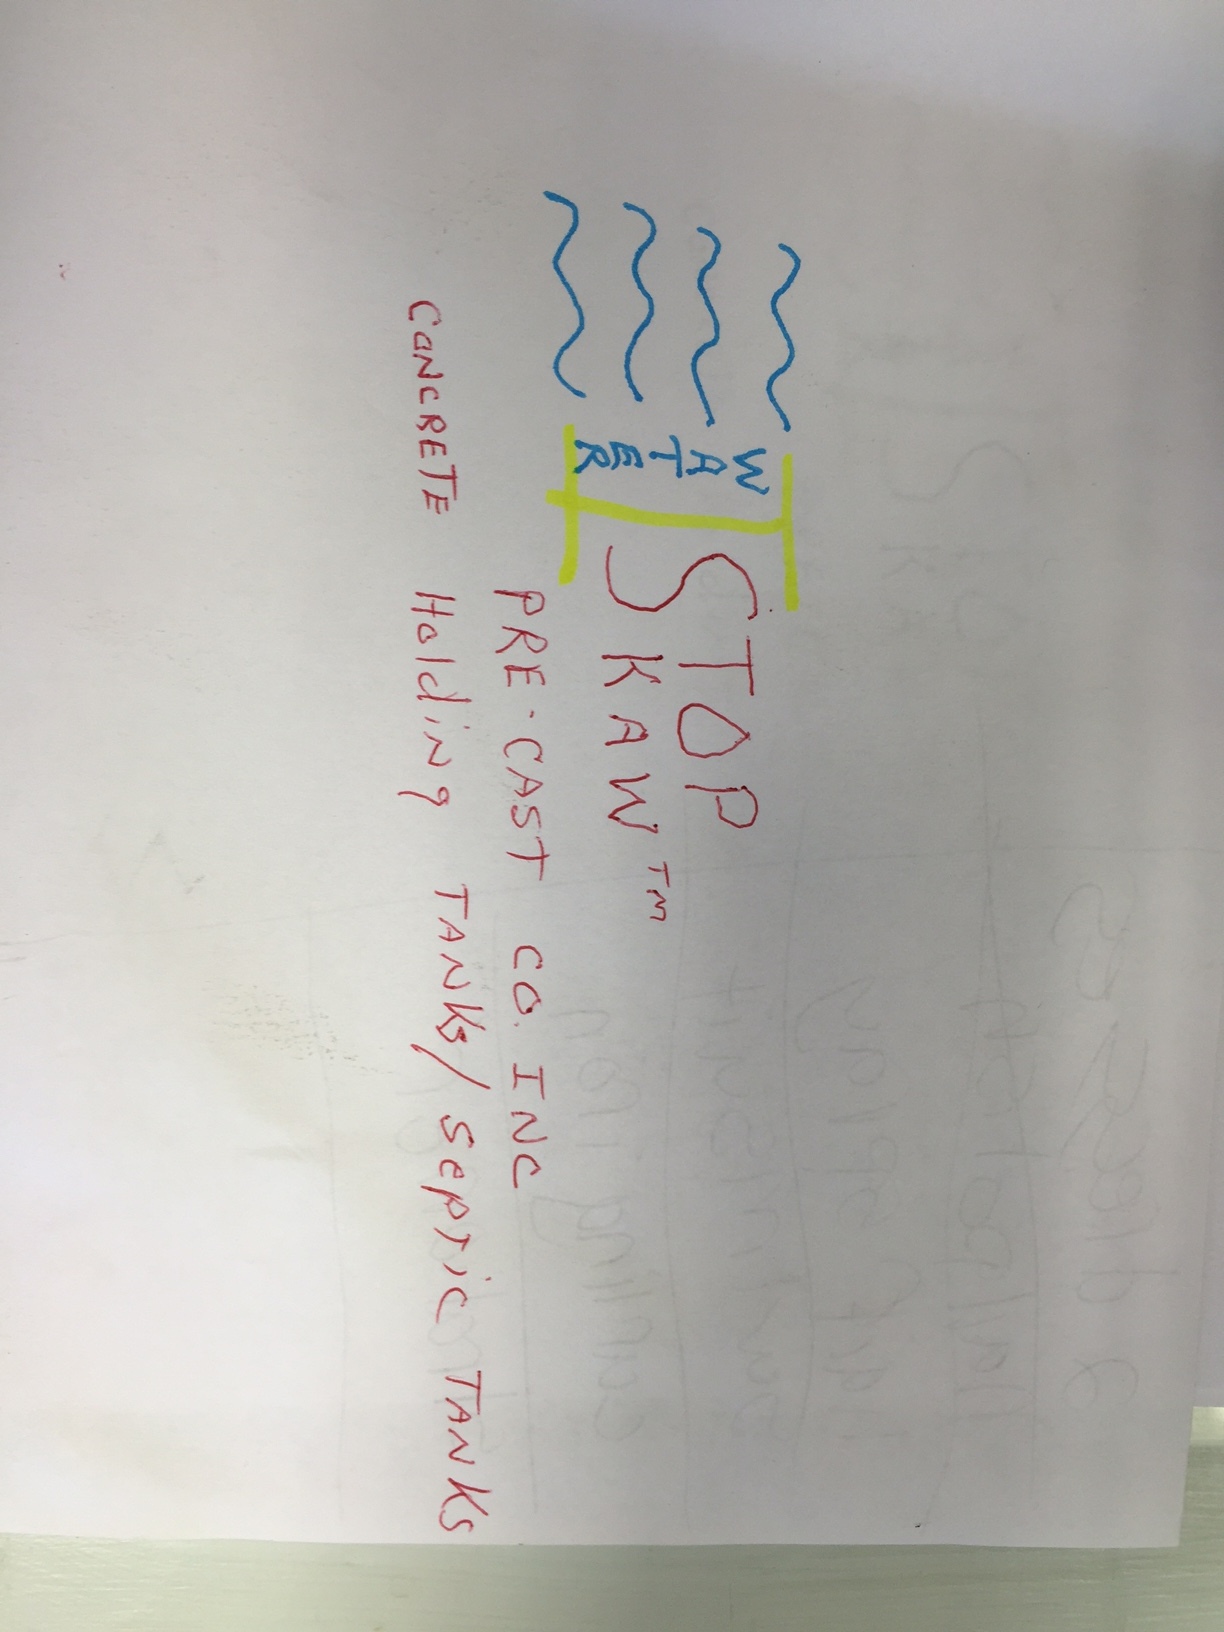 WATER
STOP
SKAW™
PRE-CAST CO. INC
CONCRETE Holding TANKS/SEPTIC TANKS